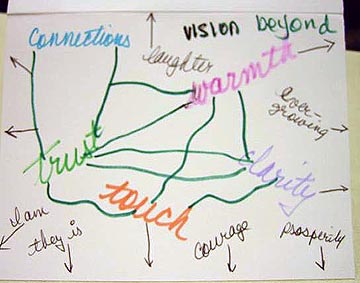 connections
vision beyond
laughter
warmth
ever-
growing
trust
clarity
touch
I am
they is
courage
prosperity